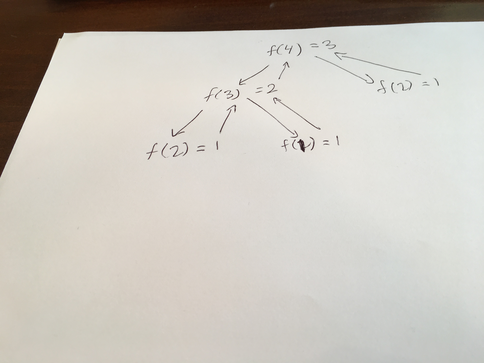 f(4) = 3
f(3) = 2 f(2) = 1
f(2) = 1 f(1) = 1